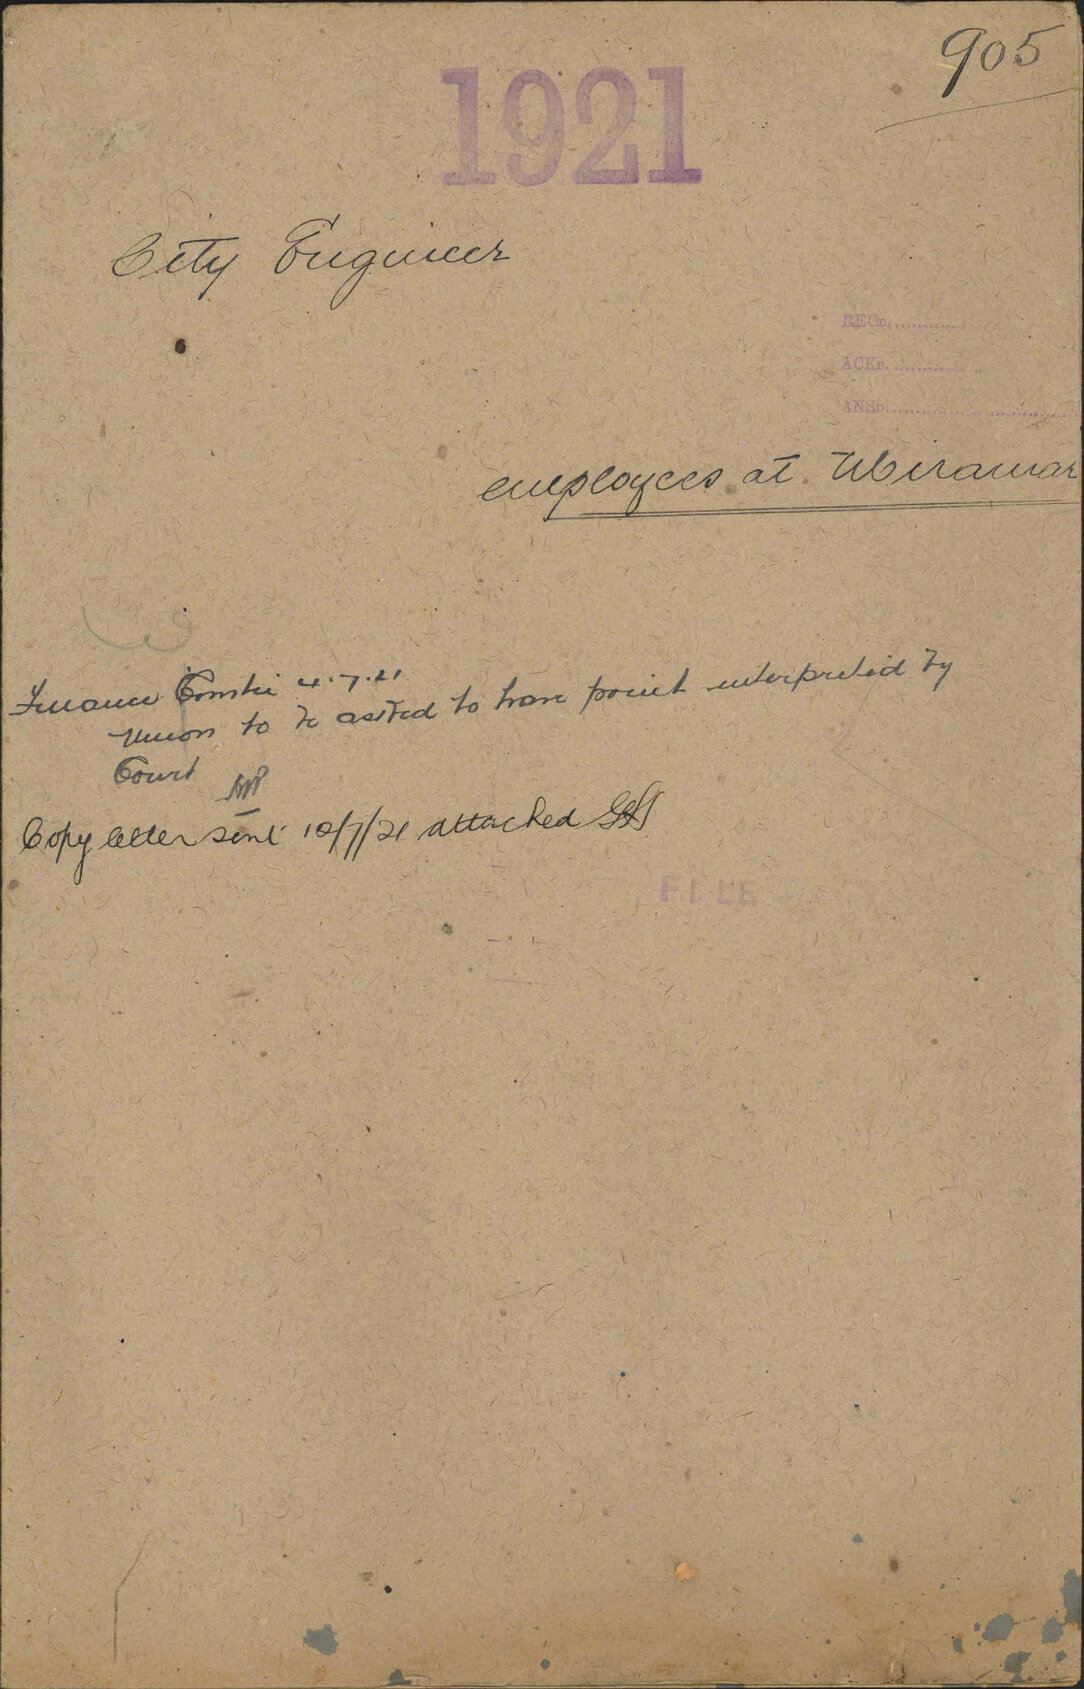 905
1921
City Engineer
RECD.
ACKD.
ANSD.
employees at Miramar
Finance Comtee 4.7.21
Union to be asked to have point interpreted by
Court
Copy letter sent 12/7/21 attached
FILE